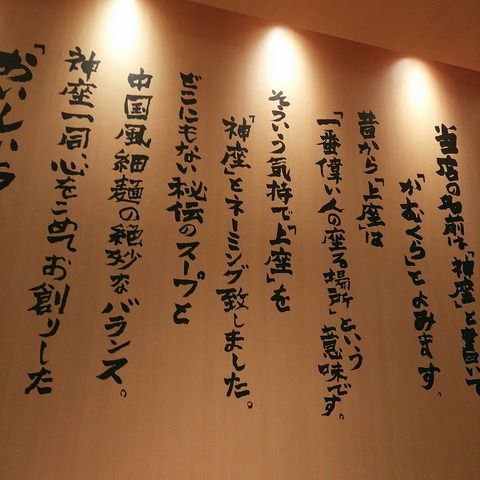 当店の名前は「神座」と書いて
「かむくら」とよみます。
昔から「上座」は
「一番偉い人の座る場所」という
意味です。
そういう気持で「上座」を
「神座」とネーミング致しました。
どこにもない秘伝のスープと
中国風細麺の絶妙なバランス。
神座一同、心をこめてお創りした
「おいしいラ